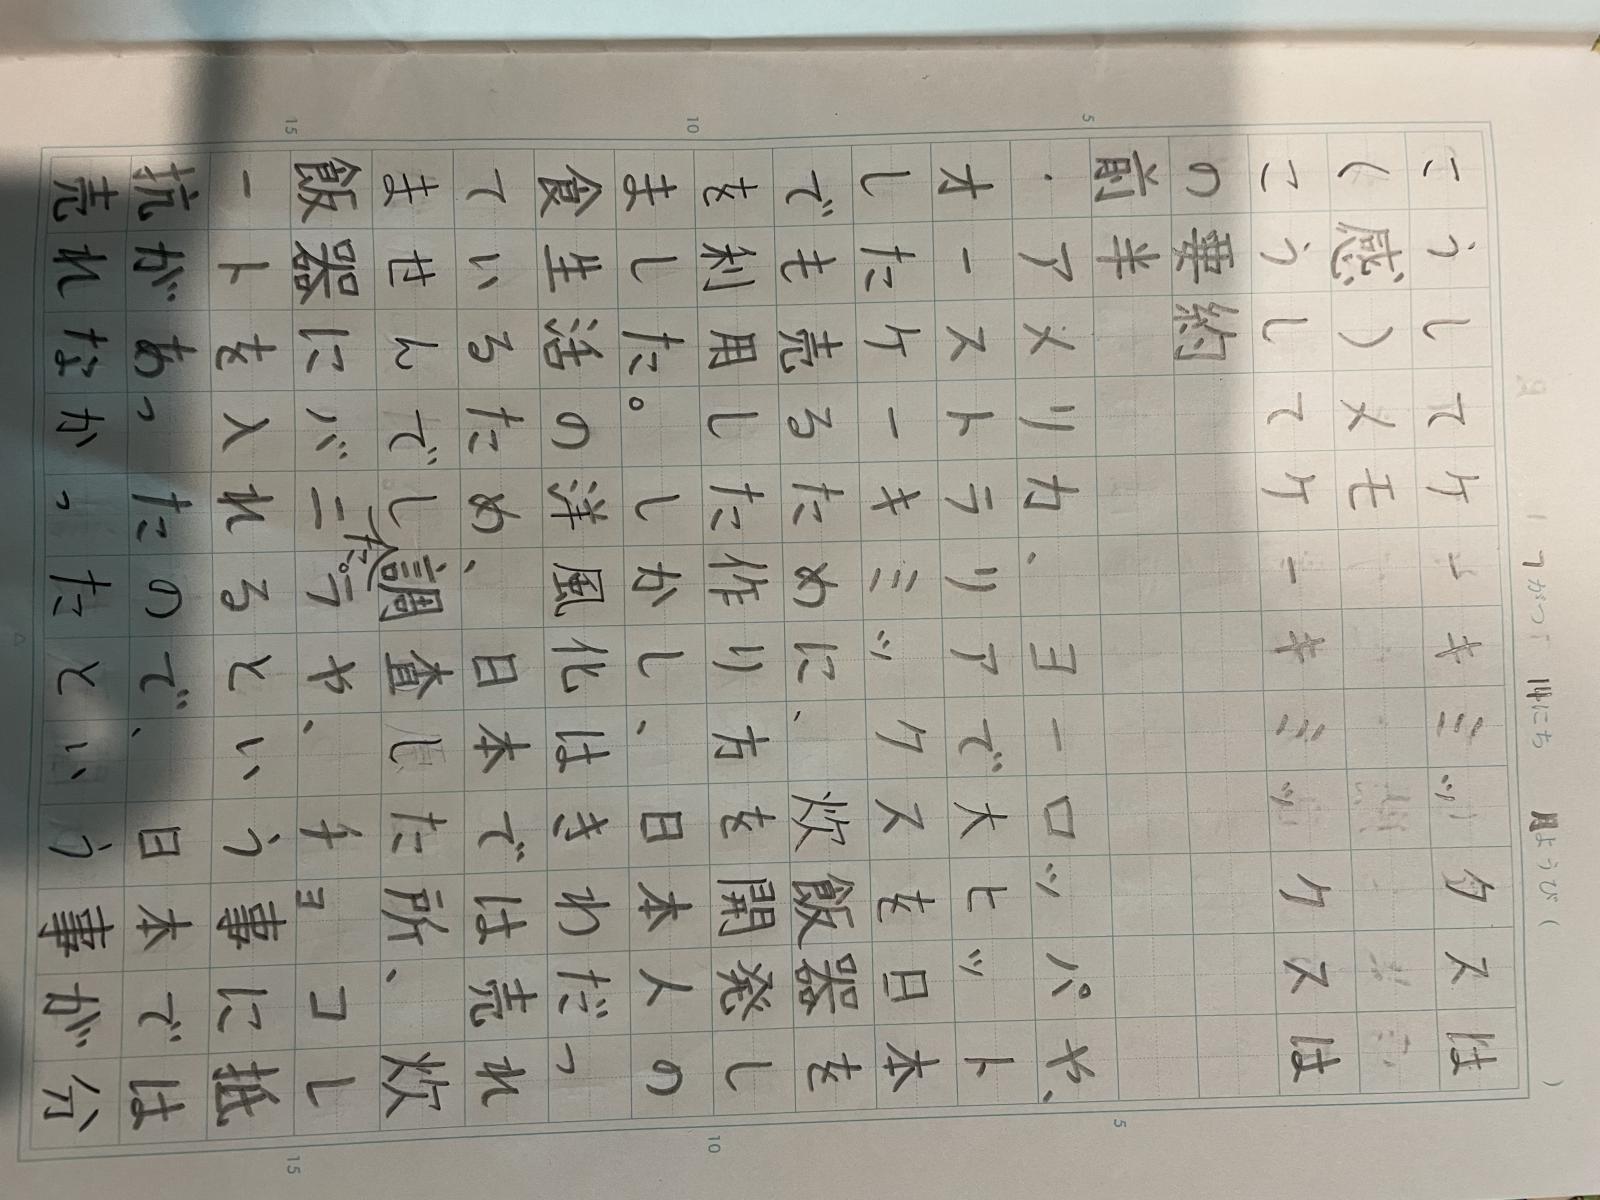 7がつ 14にち 月ようび ( )
こうしてケーキミックスは
(感)メモ
こうしてケーキミックスは
の要約
前半
・アメリカ、ヨーロッパや、
オーストラリアで大ヒット
したケーキミックスを日本
でも売るために、炊飯器を
を利用した作り方を開発し
ました。しかし、日本人の
食生活の洋風化はきわだっ
ているため、日本では売れ
ませんでした。調査した所、炊
飯器にバニラや、チョコレ
ートを入れるという事に抵
抗があったので、日本では
売れなかったという事が分
5
10
15
5
10
15